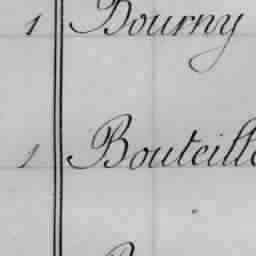 1 Bourny
1 Bouteille